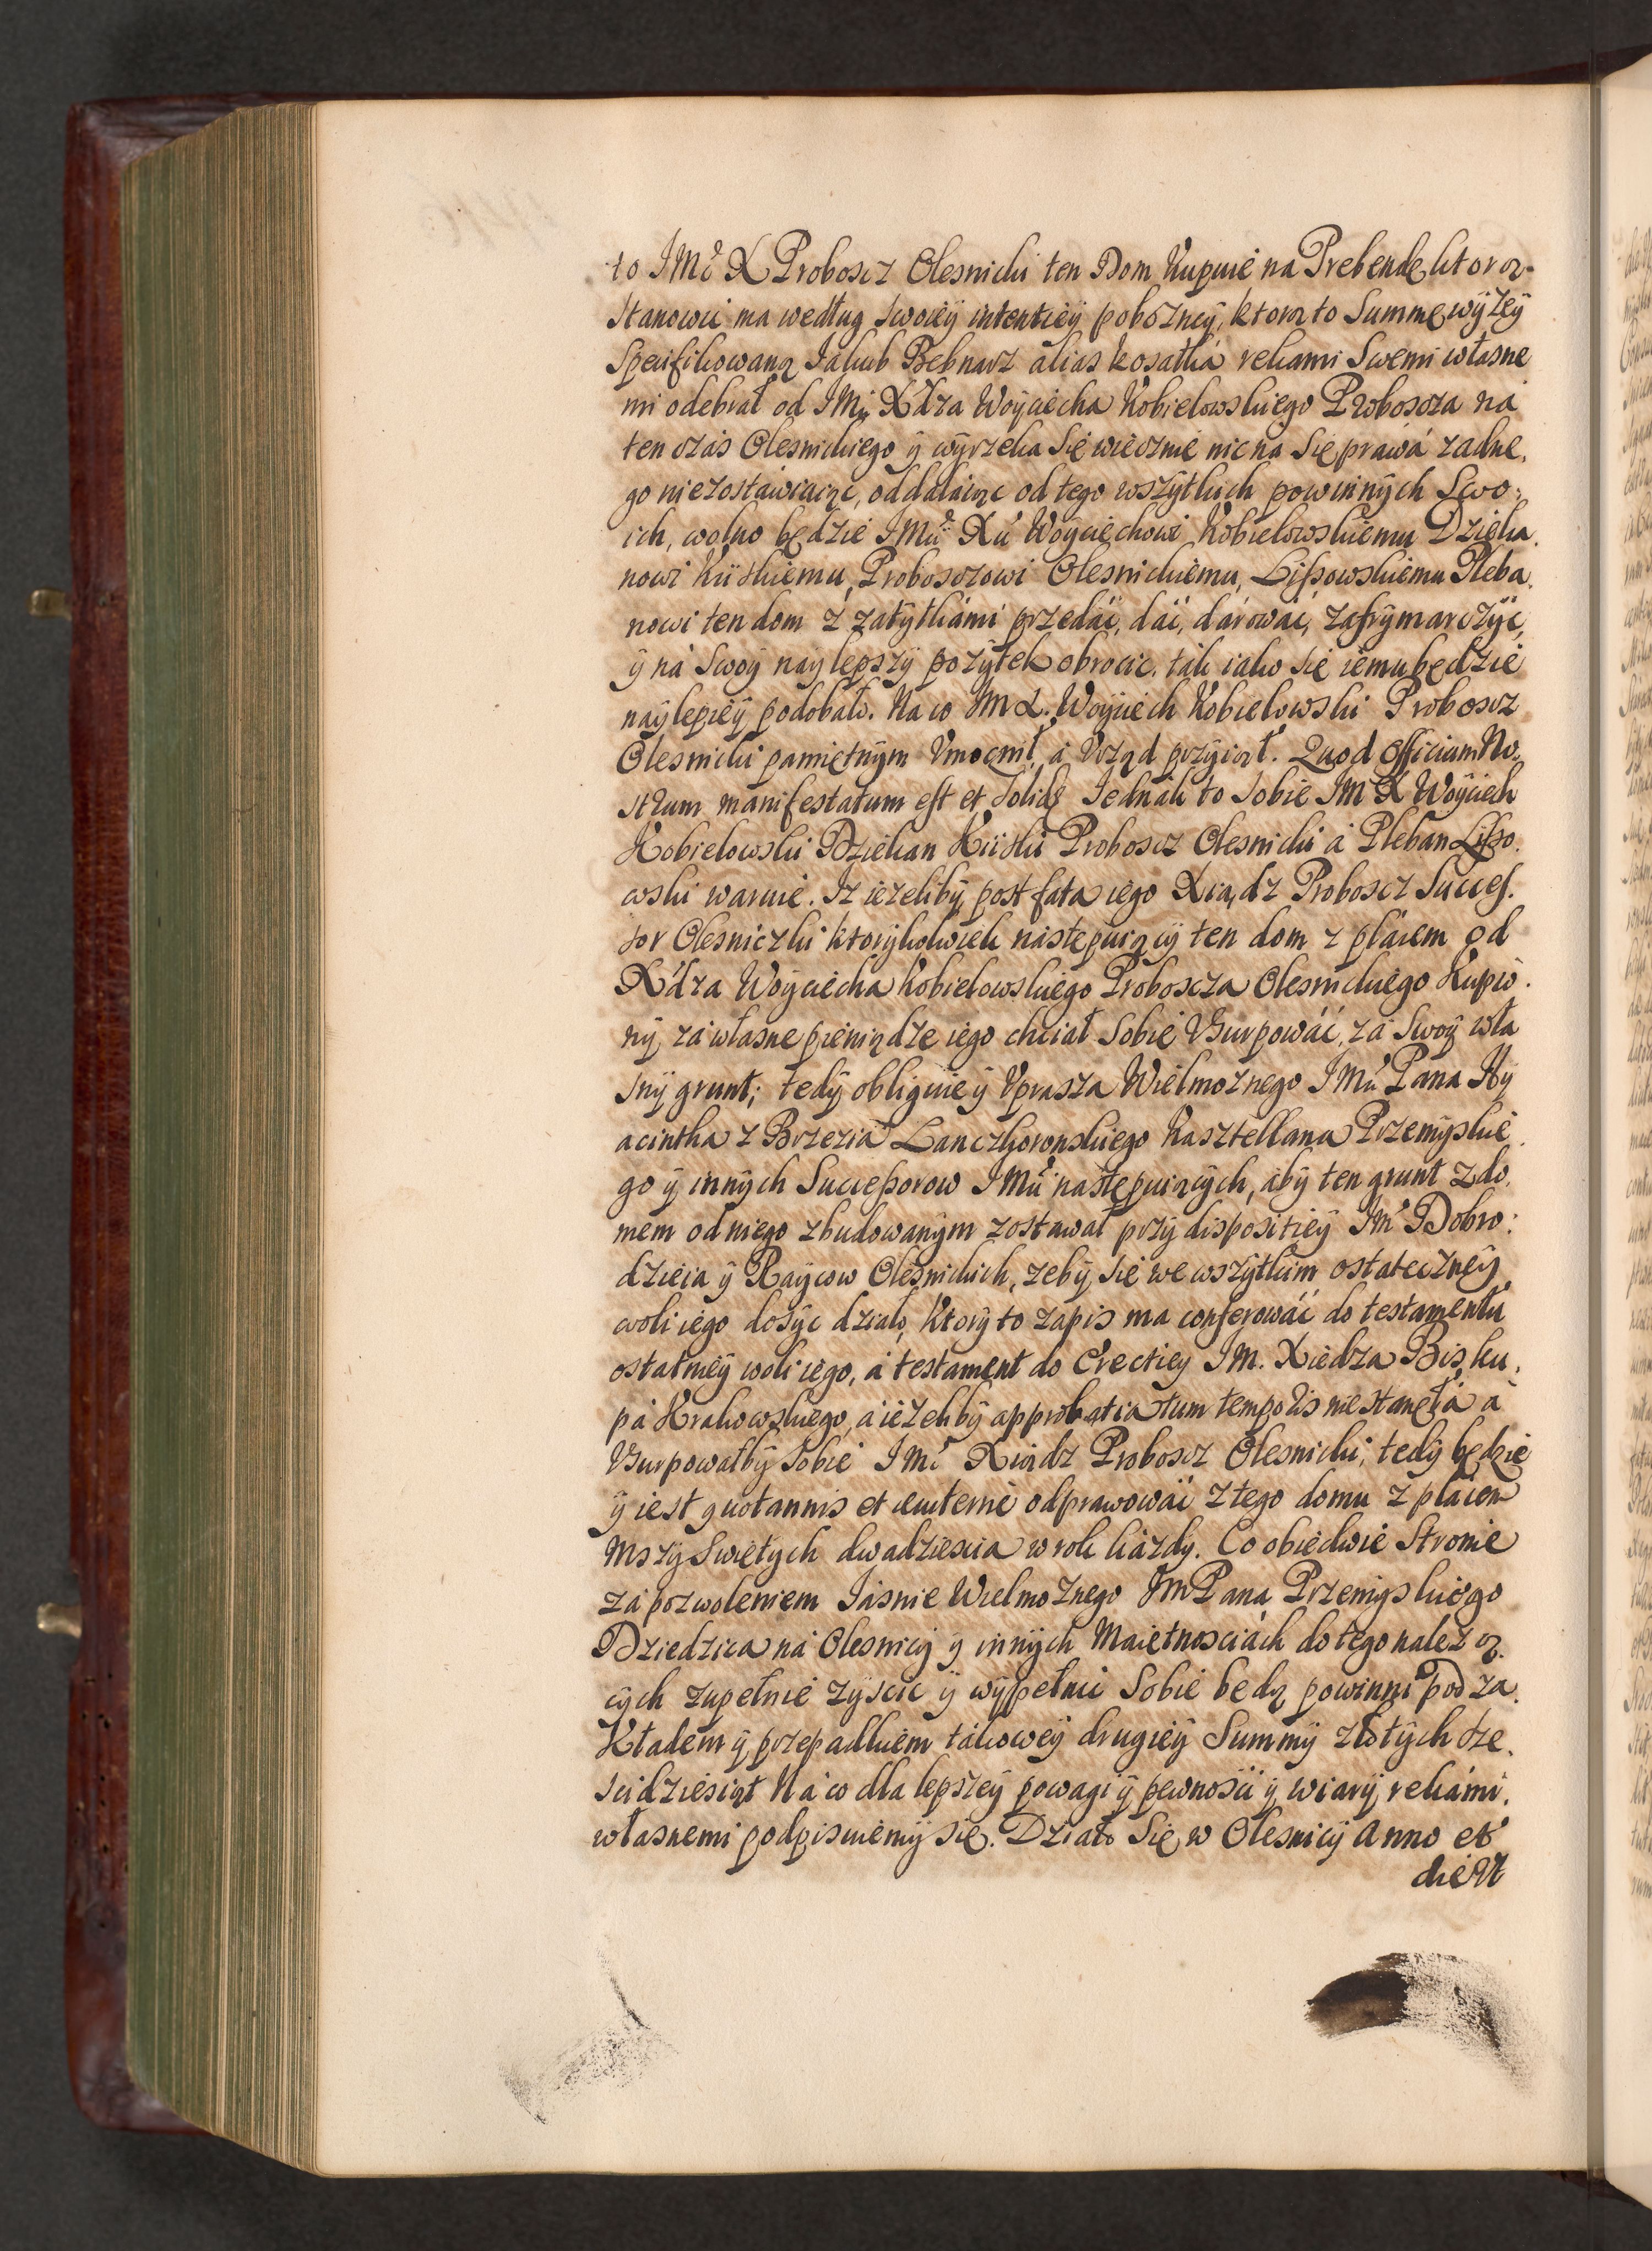 to JMć X Proboscz Olesnicki ten Dom kupuie na Prebendę ktorą
stanowić ma według swoiey intentiey pobożney, ktorą to Summę wyżey
specifikowaną Jakub Bebnarz alias kosałka rekami swemi własne
mi odebrał od JMci Xdza Woyciecha Kobielowskiego Proboscza na
ten czas Olesnickiego y wyrzeka się wiecznie nic na się prawa zadne.
go niezostawiaiąc, oddalaiąc od tego wszytkich powinnych Swo.
ich, wolno będzie JMci Xu Woyciechowi Kobielowskiemu Dzieka.
nowi Kiiskiemu, Probosczowi Olesnickiemu, Lißowskiemu Pleba.
nowi ten dom z zabytkami przedać, dać, darować, zafrymarczyć
y na swoy naylepszy pożytek obrocić, tak iako się iemu będzie
naylepiey podobało. Na co JM X. Woyciech Kobielowski Proboscz
Olesnicki pamiętnym Vmocnił, a Vrząd przyiął. Quod officium No.
strum manifestatum est et solide Jednak to sobie JM X Woyciech
Kobielowski Dziekan Kiiski Proboscz Olesnicki a Pleban Lißo.
wski waruie. Iz iezeliby post fata iego Xiądz Proboscz Succes.
sor Olesniczki ktorykolwiek następuiący ten dom z placem od
Xdza Woyciecha Kobielowskiego Proboscza Olesnickiego Kupio.
ny, za własne pieniądze iego chciał sobie Vsurpować, za swoy wła
sny grunt; tedy obliguie y Vprasza Wielmożnego JMci Pana Hy
acintha z Brzezia Lanczkoronskiego Kasztellana Przemyskie.
go y innych Succeßorow JMci następuiących, aby ten grunt z do.
mem od niego zbudowanym zostawał przy dispositiey JM Dobro:
dzieia y Raycow Olesnickich, zeby się we wszytkim ostateczney
woli iego dosyc działo, Ktory to zapis ma conferować do testamentu
ostatniey woli iego, a testament do Erectiey JM. Xiedza Bisku.
pa Krakowskiego, a ieżeliby approbatia tum temporis nie stanęła a
Vsurpowałby sobie JMć Xiądz Proboscz Olesnicki; tedy będzie
y iest quotannis et aeviternie odprawować z tego domu z placem
Mszy Swiętych dwadziescia w rok każdy. Co obiedwie Stronie
za pozwoleniem Jasnie Wielmożnego JM Pana Przemyskiego
Dziedzica na Olesnicy y innych Maiętnosciach do tego należą.
cych zupełnie zyscić y wypełnić sobie będą powinni pod za.
Kładem y przepadkiem takowey drugiey Summy złotych sze.
scidziesiąt Na co dla lepszey powagi y pewnosci y wiary, rekami.
własnemi podpisuiemy się. Działo się w Olesnicy Anno et
die Vt